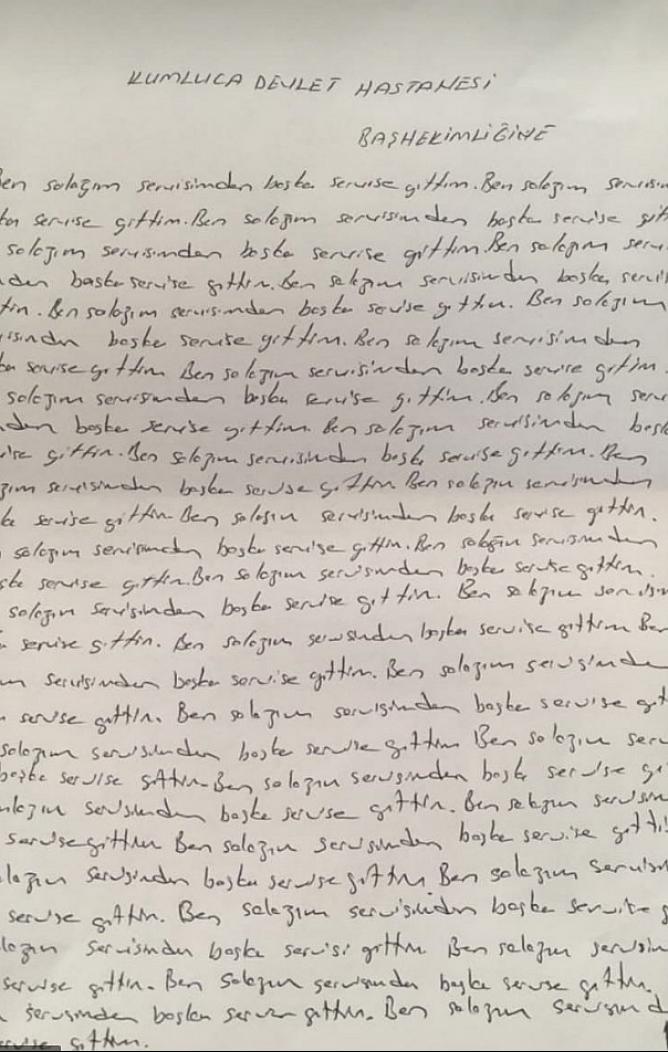 KUMLUCA DEVLET HASTANESİ
BAŞHEKİMLİĞİNE
Ben salağım servisimden başka servise gittim. Ben salağım servisim
servise gittim. Ben salağım servisimden başka servise git
salağım servisimden başka servise gittim. Ben salağım serv
den başka servise gittim. Ben salağım servisimden başka servis
tim. Ben salağım servisimden başka servise gittim. Ben salağım
isimden başka servise gittim. Ben salağım servisimden
servise gittim Ben salağım servisimden başka servise gittim.
salağım servisimden başka servise gittim. Ben salağım serv
den başka servise gittim. Ben salağım servisimden başk
ise gittim. Ben salağım servisimden başka servise gittim. Ben
ğım servisimden başka servise gittim. Ben salağım servisimden
servise gittim Ben salağım servisimden başka servise gittim.
salağım servisimden başka servise gittim. Ben salağım servisimden
servise gittim. Ben salağım servisimden başka servise gittim.
salağım servisimden başka servise gittim. Ben salağım servisim
servise gittim. Ben salağım servisimden başka servise gittim Ben
servisimden başka servise gittim. Ben salağım servisimden
servise gittim. Ben salağım servisimden başka servise git
salağım servisimden başka servise gittim Ben salağım serv
başka servise gittim. Ben salağım servisimden başka servise gi
servisimden başka servise gittim. Ben salağım servisim
servise gittim Ben salağım servisimden başka servise gitti
alağım servisimden başka servise gittim Ben salağım servisim
servise gittim. Ben salağım servisimden başka servise g
lağım servisimden başka servisi gittim Ben salağım servisim
servise gittim. Ben salağım servisimden başka servise gittim.
servisimden başka gittim. Ben salağım servisimd
servise gittim.